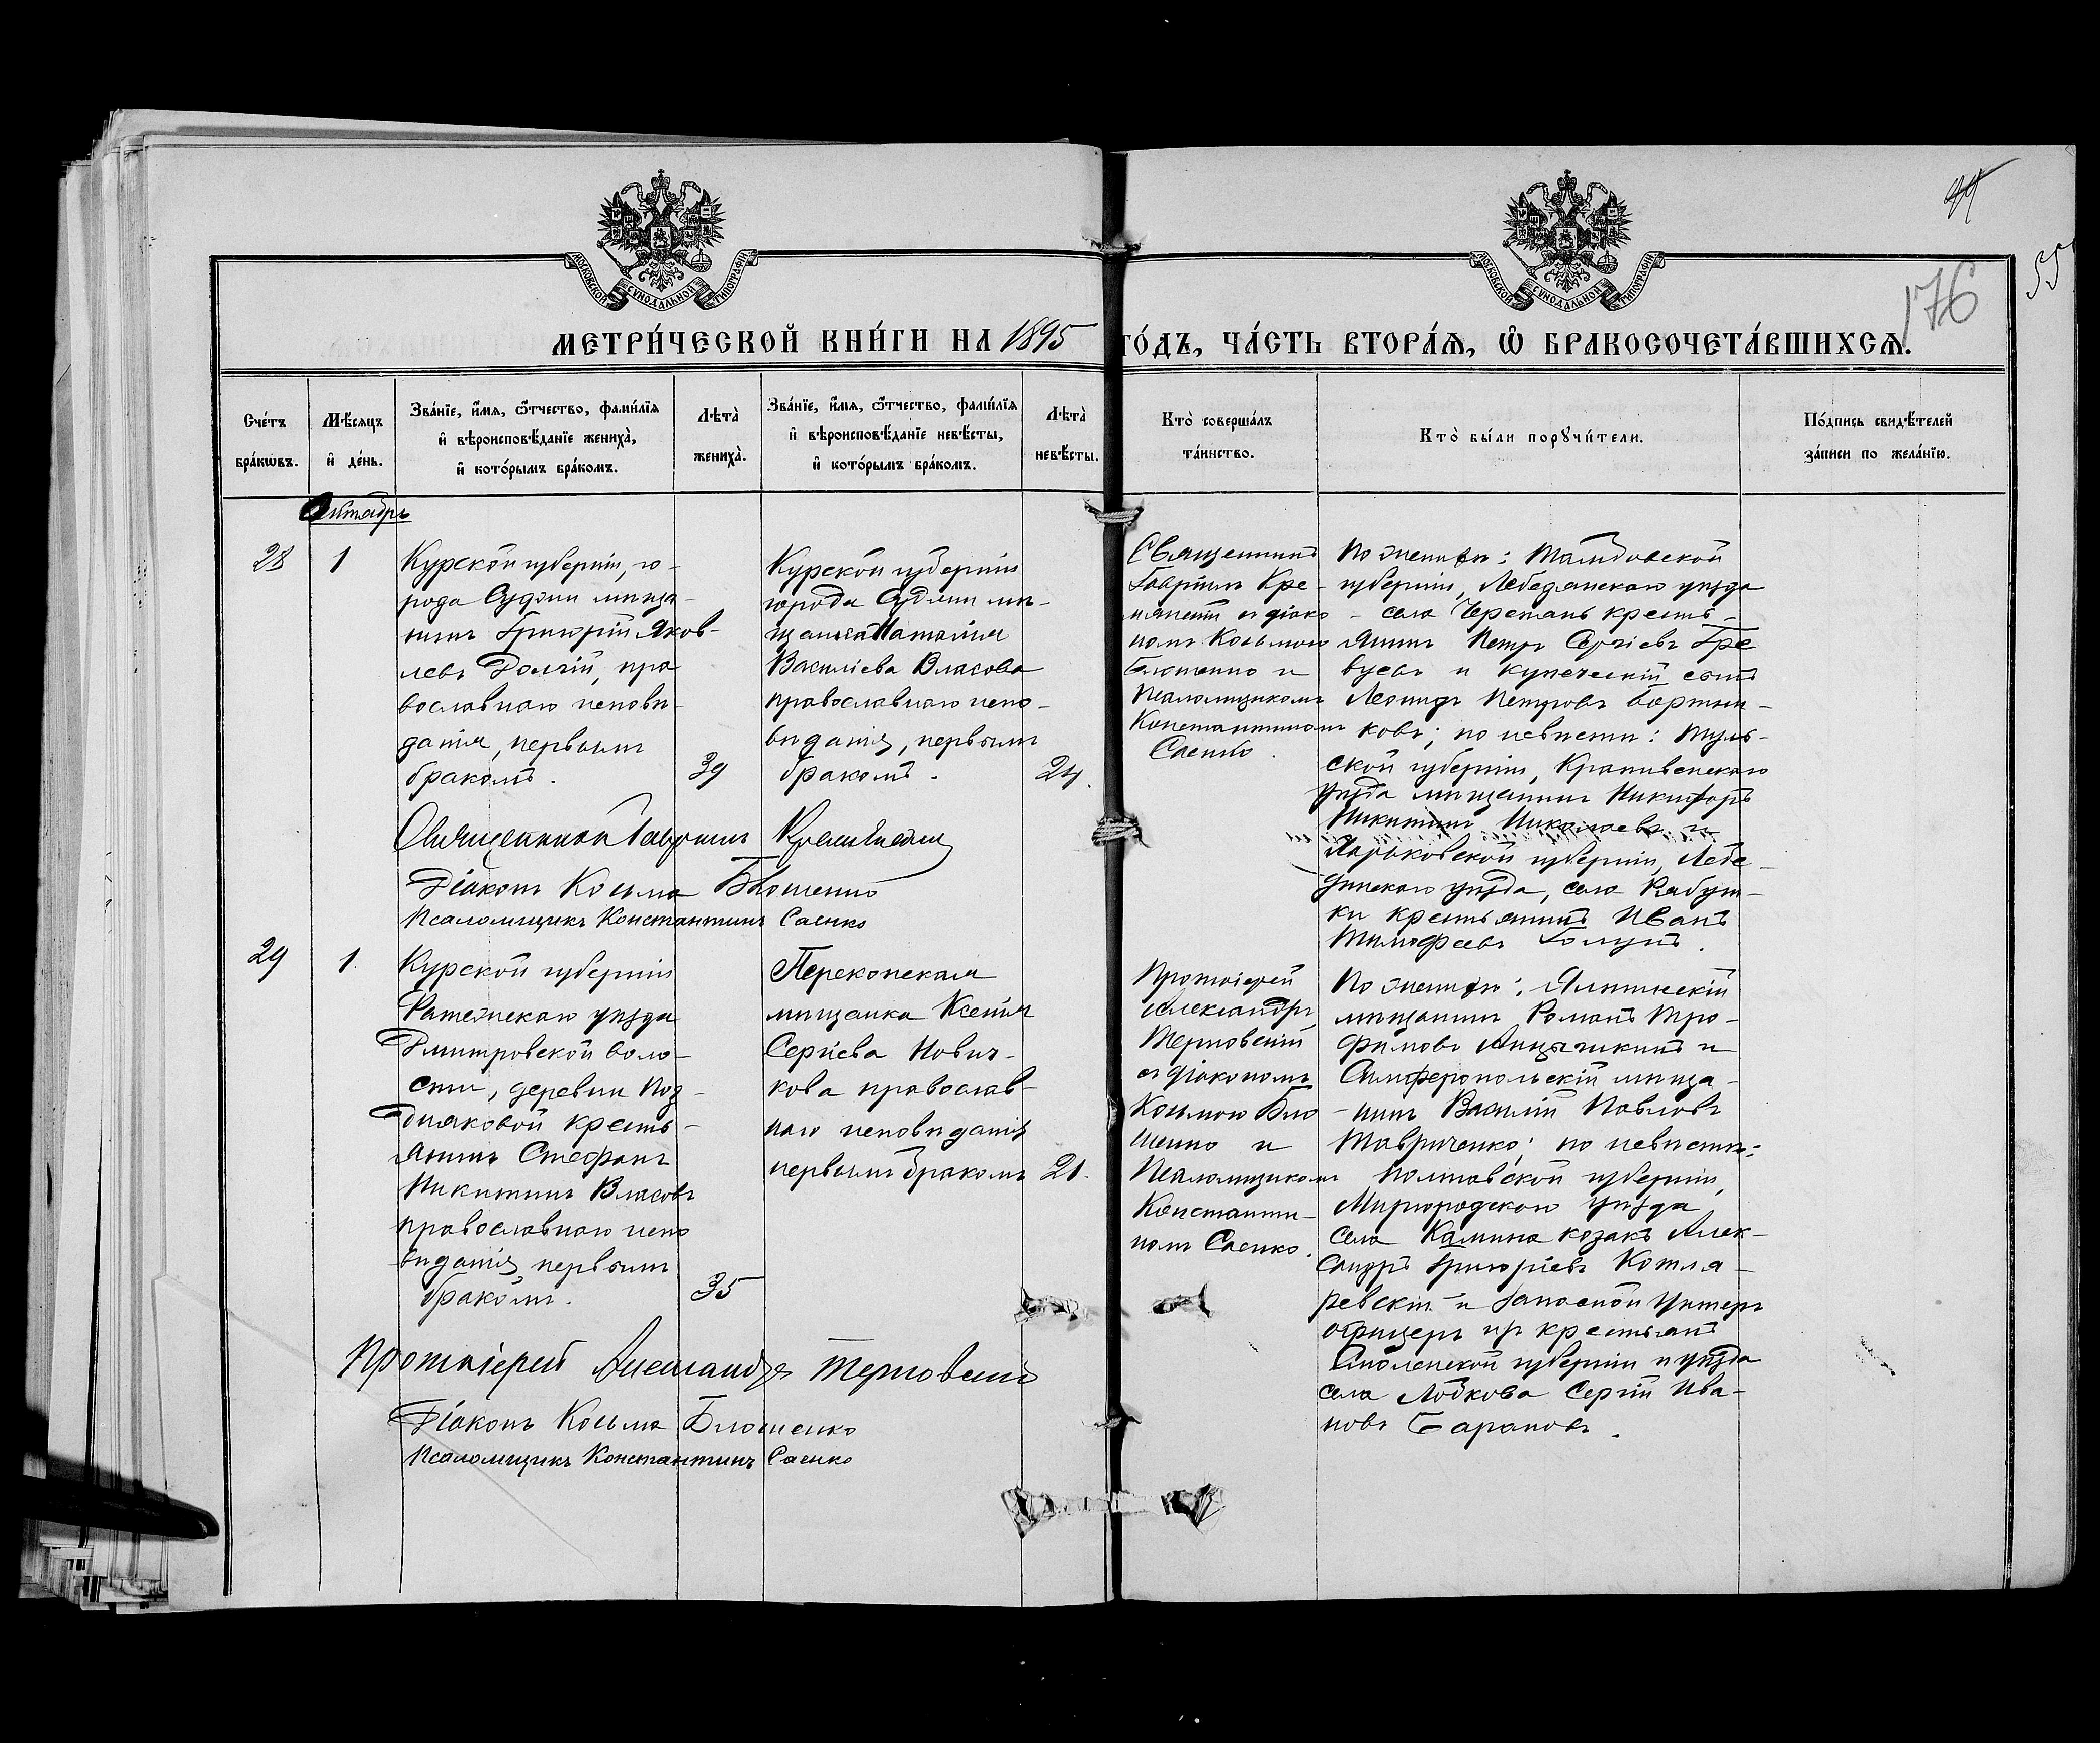 МОСКОВСКОЙ СѴНОДАЛЬНОЙ ТИПОГРАФІИ
МОСКОВСКОЙ СѴНОДАЛЬНОЙ ТИПОГРАФІИ
55
176
МЕТРИ́ЧЕСКОЙ КНИ́ГИ НА 1895 ГО́ДЪ, ЧА́СТЬ ВТОРА́Ѧ, Ѡ҆ БРАКОСОЧЕТА́ВШИХСѦ.
Сче́тъ
бра́кѡвъ.
Мѣ́сѧцъ
и҆ де́нь.
Зва́нїе, и҆́мѧ, ѻ҆́тчество, фами́лїѧ
и҆ вѣроисповѣ́данїе жениха̀,
и҆ кото́рымъ бра́комъ.
Лѣта̀
жениха̀.
Зва́нїе, и҆́мѧ, ѻ҆́тчество, фами́лїѧ
и҆ вѣроисповѣ́данїе невѣ́сты,
и҆ кото́рымъ бра́комъ.
Лѣта̀
невѣ́сты.
Кто̀ соверша́лъ
та́инство.
Кто̀ бы́ли порꙋчи́тели.
По́дпись свидѣ́телей
за́писи по жела́нїю.
Октябрь
28
1
Курской губерніи, го-
рода Суджи мѣща-
нинъ Григорій Яков-
левъ Долгій, пра
вославнаго исповѣ-
данія, первымъ
бракомъ.
39
Курской губерніи
города Суджи мѣ-
щанка Наталія
Василіева Власова
православнаго испо-
вѣданія, первымъ
бракомъ.
24.
Священникъ
Гавріилъ Кре-
мянскій съ діако
номъ Косьмою
Блошенко и
Псаломщикомъ
Константиномъ
Саенко.
По женихѣ: Тамбовской
губерніи, Лебедянскаго уѣзда
села Черепань кресть-
янинъ Петръ Сергіевъ Гре
вцевъ и купеческій сынъ
Леонидъ Петровъ Бортни-
ковъ; по невѣстѣ: Туль-
ской губерніи, Крапивенскаго
уѣзда мѣщанинъ Никифоръ
Никитинъ Николаевъ и
Харьковской губерніи, Лебе-
динскаго уѣзда, села Рябуш-
ки крестьянинъ Иванъ
Тимофеевъ Голубъ.
Священникъ Гавріилъ Кремянскій
Діаконъ Косьма Блошенко
Псаломщикъ Константинъ Саенко
29
1.
Курской губерніи
Фатежскаго уѣзда
Дмитровской воло-
сти, деревни Поз-
дняковой кресть-
янинъ Стефанъ
Никитинъ Власовъ
православнаго испо
вѣданія, первымъ
бракомъ.
35
Перекопская
мѣщанка Ксенія
Сергіева Нович-
кова православ-
наго исповѣданія
первымъ бракомъ
21.
Протоіерей
Александръ
Терновскій
съ діакономъ
Косьмою Бло
шенко и
Псаломщикомъ
Константи-
номъ Саенко.
По женихѣ: Ялтинскій
мѣщанинъ Романъ Тро-
фимовъ и
Симферопольскій мѣща-
нинъ Василій Павловъ
Тавриченко; по невѣстѣ:
Полтавской губерніи,
Миргородскаго уѣзда
села Камина козакъ Алек-
сандръ Григоріевъ Котля-
ревскій и Запасной Унтеръ
офицеръ изъ крестьянъ
Смоленской губерніи и уѣзда
села Лобкова Сергій Ива-
новъ Барановъ.
Протоіерей Александръ Терновскій
Діаконъ Косьма Блошенко
Псаломщикъ Константинъ Саенко